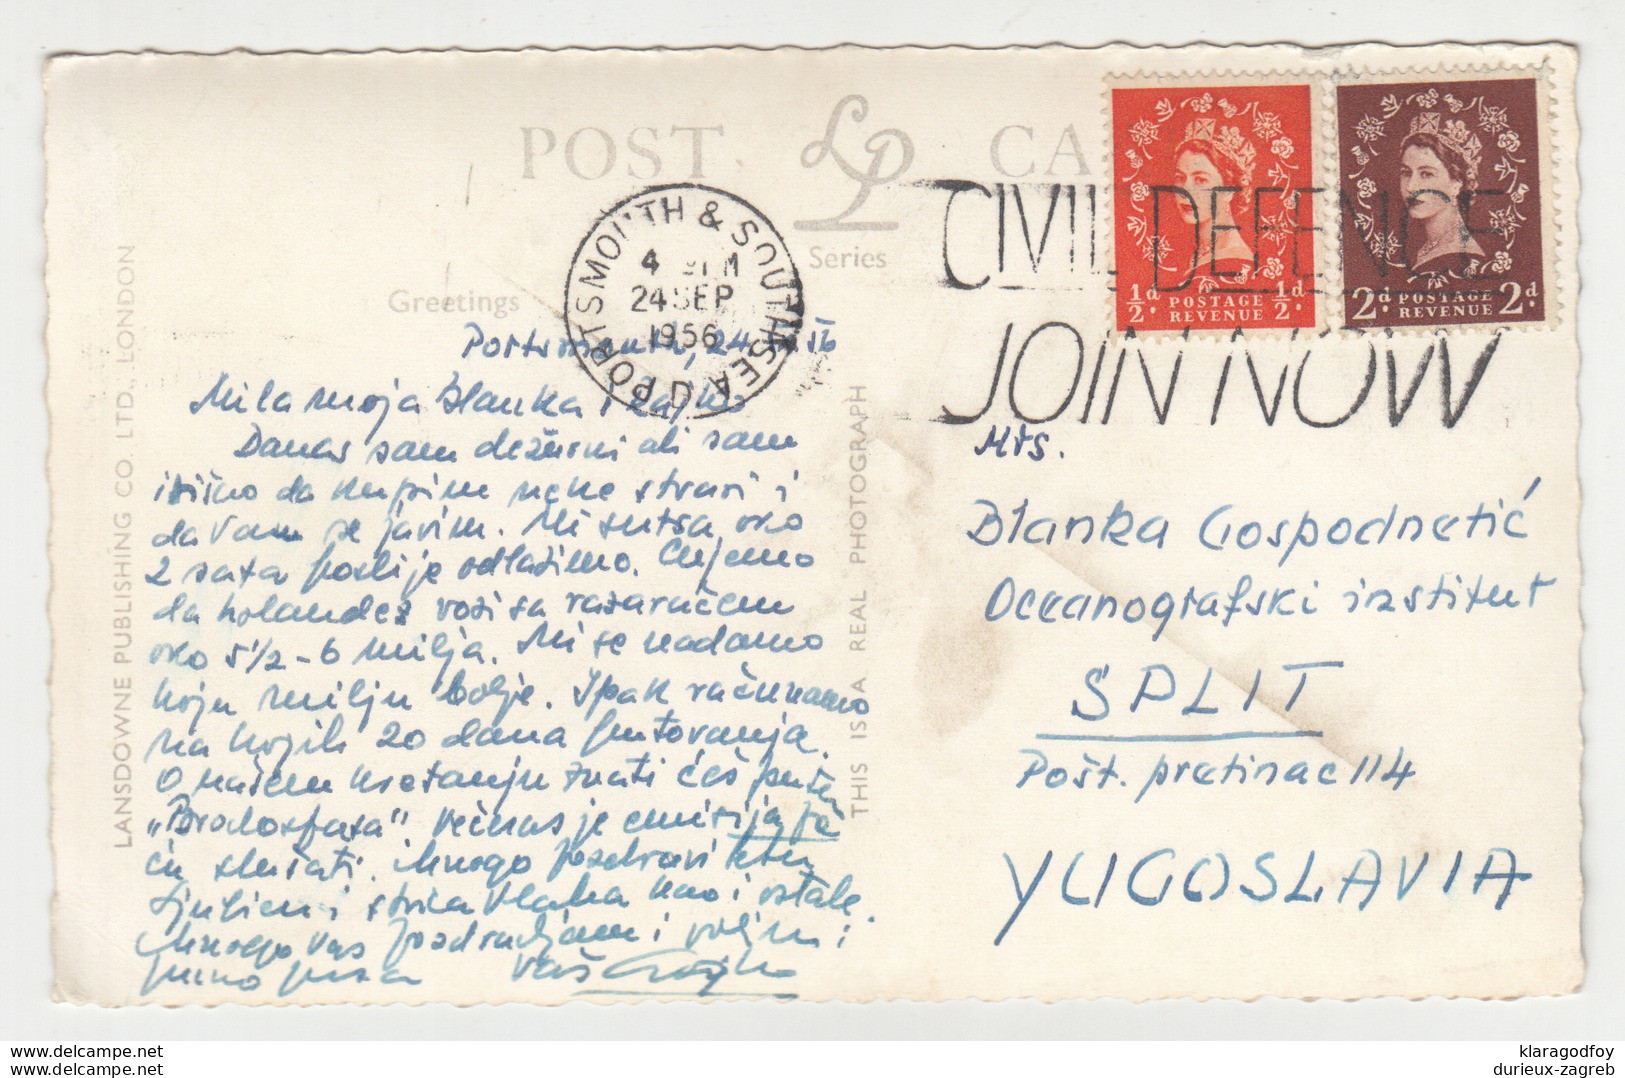 POST CA
LP
Series
Greetings
PORTSMOUTH & SOUTHSEA D
4 PM
24 SEP
1956
CIVIL DEFENCE
JOIN NOW
½d POSTAGE REVENUE ½d
2d POSTAGE REVENUE 2d
LANSDOWNE PUBLISHING CO. LTD., LONDON
THIS IS A REAL PHOTOGRAPH
Portsmouth, 24
Mila moja Blanka i
Danas sam dežurni ali sam
da kupim neke stvari i
da Vam se javim. Mi sutra oko
2 sata poslije odlazimo.
da holandez vozi sa razaračem
oko 5 1/2 - 6 milja. Mi se nadamo
koju milju bolje. Ipak računamo
na kojih 20 dana putovanja.
O našem kretanju znati ćeš
"Brodospasa". Večeras je emisija pa
ću slušati. Mnogo pozdravi
i strica Vlatka kao i ostale.
Mnogo vas pozdravljam i volim i
puno pusa Vaš
Mrs.
Blanka Gospodnetić
Oceanografski institut
SPLIT
Pošt. pretinac 114
YUGOSLAVIA
klaragodfoy
durieux-zagreb